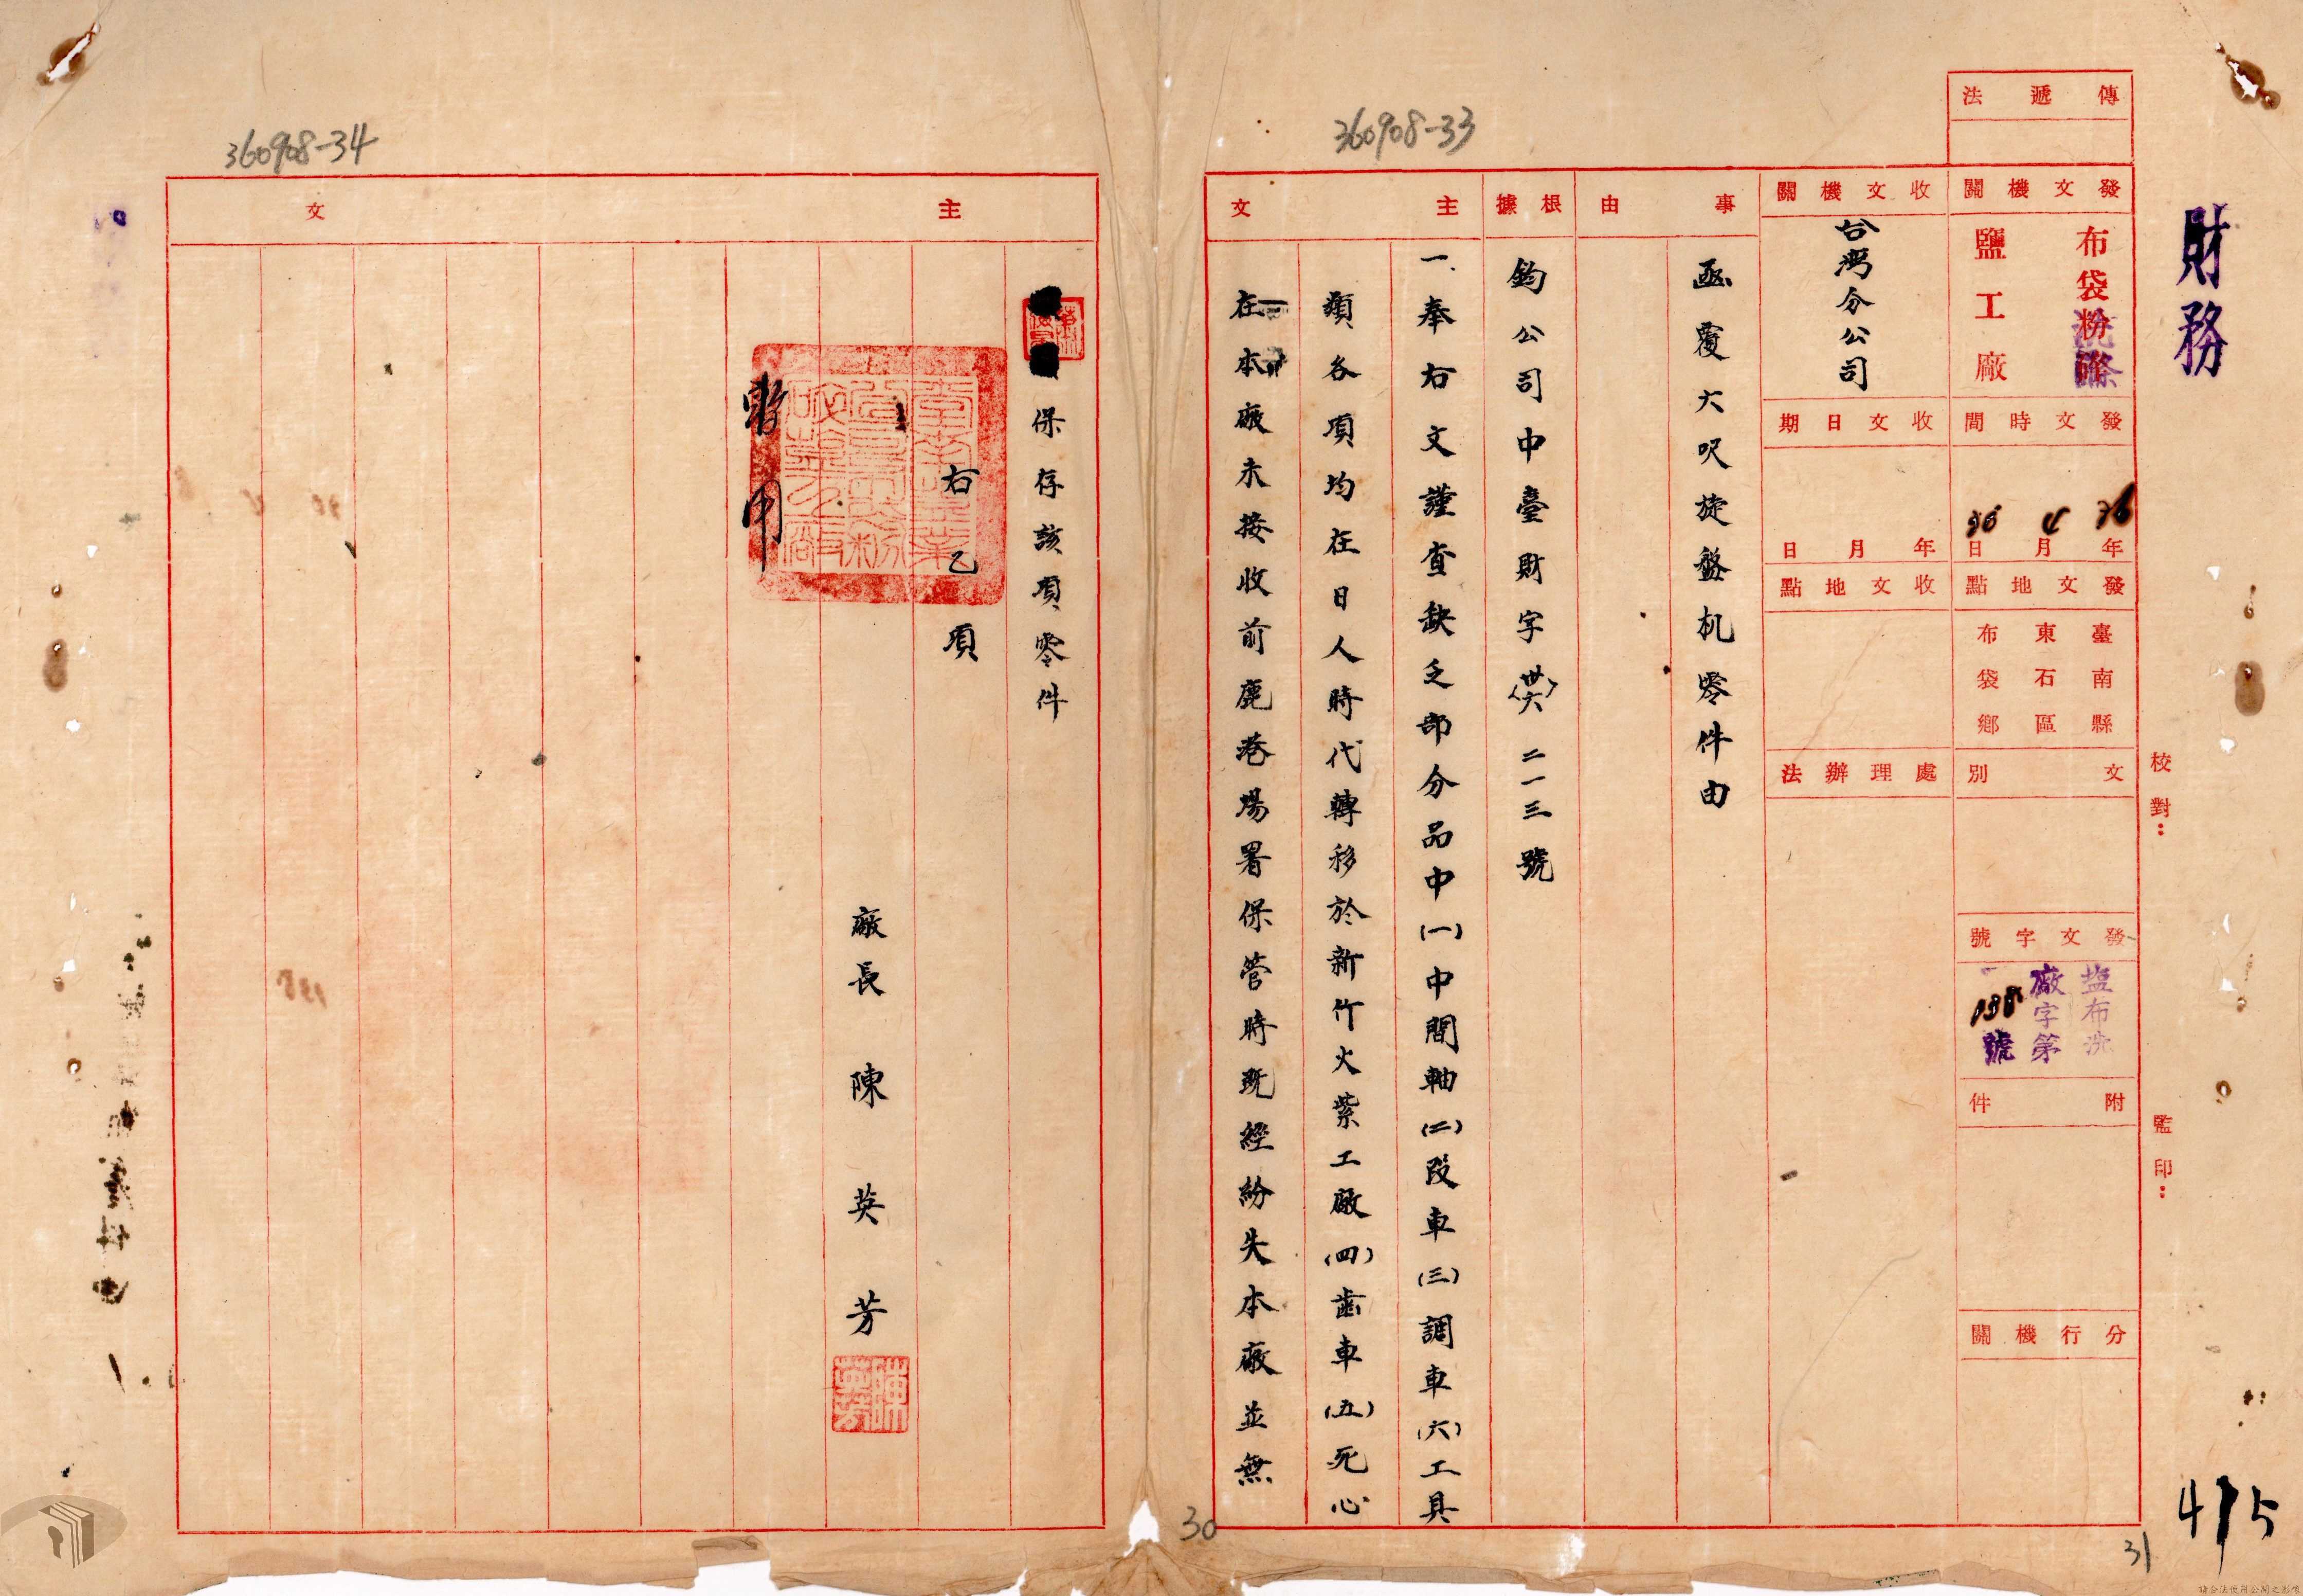 財務
傳遞法
發文機關
布袋粉碎
鹽工廠
發文時間
36年4月26日
發文地點
臺南縣
東石區
布袋鄉
文別
發文字號
塩布洗
廠字第
138號
附件
分行機關
校對：
監印：
收文機關
台灣分公司
收文日期
年月日
收文地點
處理辦法
事由
函覆大呎旋盤机零件由
根據
鈞公司中臺財字〈卅六〉二一三號
主文
一、奉右文謹查缺乏部分品中㈠中間軸㈡段車㈢調車㈥工具
類各項均在日人時代轉移於新竹火紫工廠㈣齒車㈤死心
在本廠未接收前鹿港場署保管時既經紛失本廠並無
主文
保存該項零件
右乙項
廠長 陳英芳
陳英芳
暫用
360908-33
360908-34
30
31
415
請合法使用公開之影像